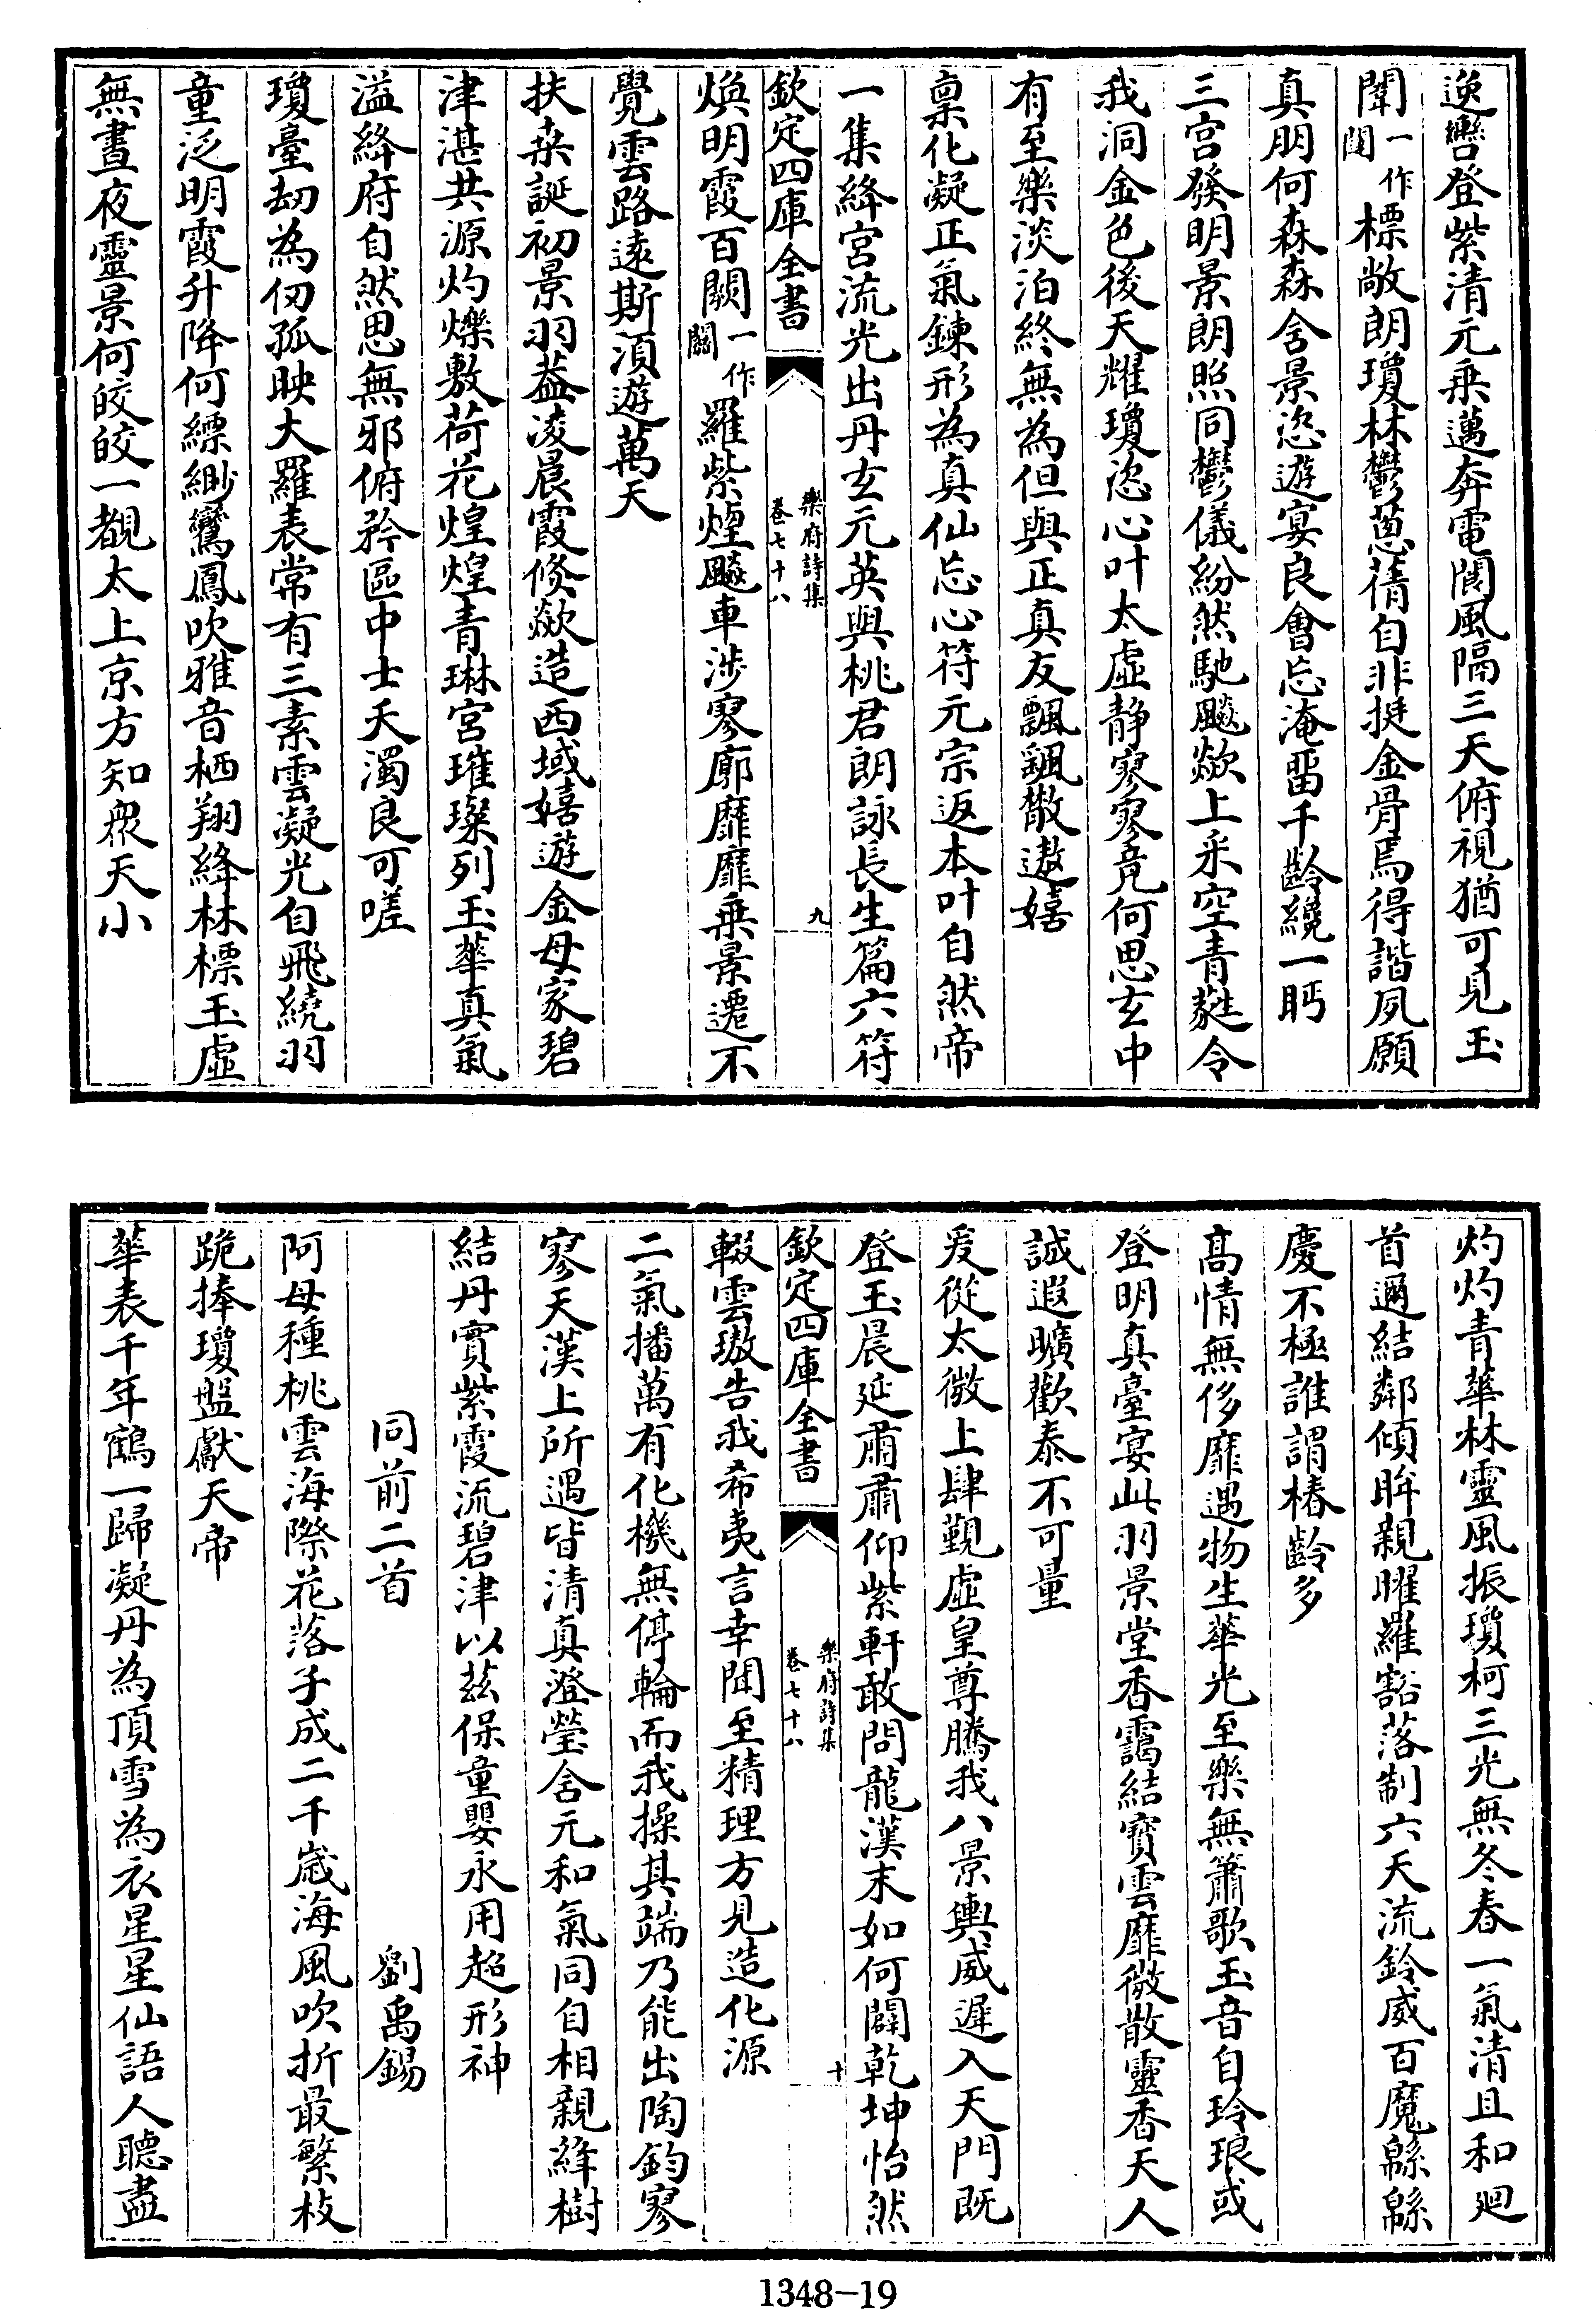 逸轡登紫清元乗邁奔電閬風隔三天俯視猶可見玉
闈一作闥標敞朗瓊林鬱蔥蒨自非挺金骨焉得諧夙願
真朋何森森含景恣遊宴良㑹忘淹留千齡纔一眄
三宫發明景朗照同鬱儀紛然馳飈歘上采空青蕤令
我洞金色後天耀瓊恣心叶太虛静寥寥竟何思玄中
有至樂淡泊終無為但與正真友飄飖散遨嬉
稟化凝正氣鍊形為真仙忘心符元宗返本叶自然帝
一集絳宫流光出丹玄元英與桃君朗詠長生篇六符
欽定四庫全書
樂府詩集
卷七十八
九
煥明霞百闗一作關羅紫煙飈車涉寥廓靡靡乗景遷不
覺雲路遠斯須遊萬天
扶桒誕初景羽葢凌晨霞倏歘造西域嬉遊金母家碧
津湛共源灼爍敷荷花煌煌青琳宫璀璨列玉華真氣
溢絳府自然思無邪俯矜區中士夭濁良可嗟
瓊臺劫為仞孤映大羅表常有三素雲凝光自飛繞羽
童泛明霞升降何縹緲鸞鳳吹雅音栖翔絳林標玉虛
無晝夜靈景何皎皎一覩太上京方知衆天小
灼灼青華林靈風振瓊柯三光無冬春一氣清且和廻
首邇結鄰傾眸親曜羅豁落制六天流鈴威百魔緜緜
慶不極誰謂椿齡多
髙情無侈靡遇物生華光至樂無簫歌玉音自玲琅或
登明真臺宴此羽景堂杳靄結寳雲靡微散靈香天人
誠遐曠歡泰不可量
爰從太微上肆覲虛皇尊騰我八景輿威遲入天門既
登玉晨延肅肅仰紫軒敢問龍漢末如何闢乾坤怡然
欽定四庫全書
樂府詩集
卷七十八
十
輟雲璈告我希夷言幸聞至精理方見造化源
二氣播萬有化機無停輪而我操其端乃能出陶鈞寥
寥天漢上所遇皆清真澄瑩含元和氣同自相親絳樹
結丹實紫霞流碧津以茲保童嬰永用超形神
同前二首
劉禹錫
阿母種桃雲海際花落子成二千歳海風吹折最繁枝
跪捧瓊盤獻天帝
華表千年鶴一歸凝丹為頂雪為衣星星仙語人聽盡
1348-19